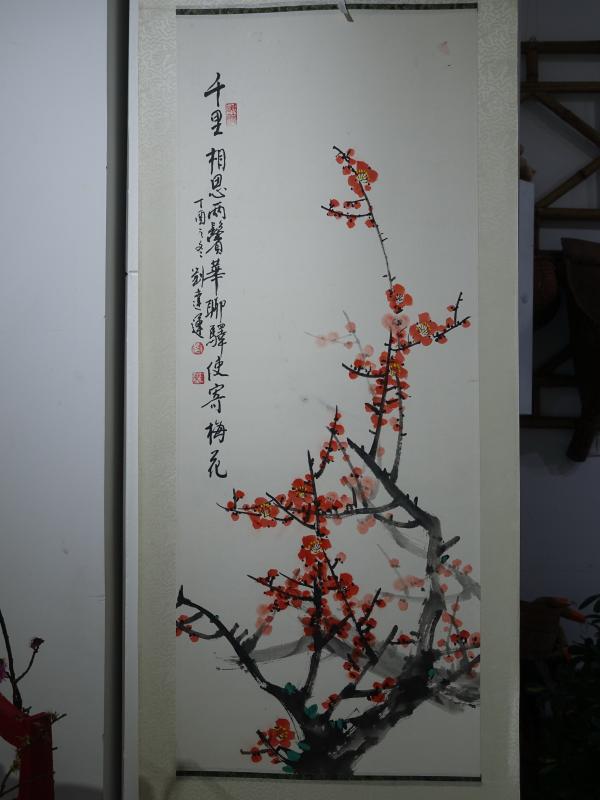 千里相思两鬢華聊驛使寄梅花
丁酉之冬 劉建運